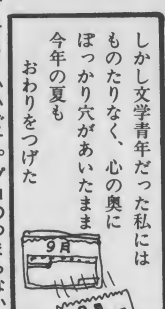 しかし文学青年だった私には
ものたりなく、心の奥に
ぽっかり穴があいたまま
今年の夏も
おわりをつげた
9月